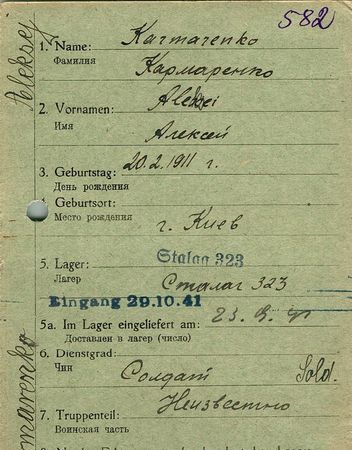 582
Aleksej
1. Name:
Фамилия
Кармаренко
2. Vornamen: Aleksei
Имя
Алексей
3. Geburtstag: 20.2.1911 г.
День рождения
Geburtsort:
Место рождения
г. Киев
5. Lager: Stalag 323
Лагер
Сталаг 323
Eingang 29.10.41
5a. Im Lager eingeliefert am:
Доставлен в лагер (число)
6. Dienstgrad:
Чин
Солдат Sold.
7. Truppenteil: Неизвестно
Воинская часть